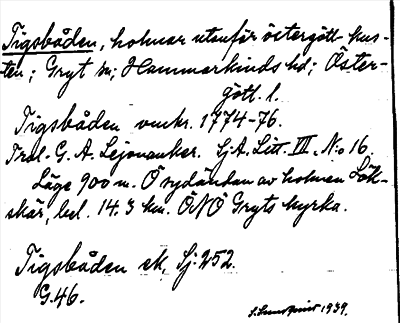 Tigsbåden, holmar utanför östergött. kus-
ten; Gryt sn; Hammarkinds hd; Öster-
götl. l.
Tigsbåden omkr. 1774-76.
Tral. G. A. Lejonanker. Sj.A. Litt. III. N:o 16.
Läge 900 m. Ö sydändan av holmen Lök-
skär, bel. 14.3 km. ÖNÖ Gryts kyrka.
Tigsbåden ek. Sj. 252.
G.46.
1939.